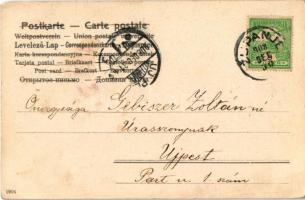 Postkarte - Carte postale
Weltpostverein - Union postale universelle
Levelező-Lap - Correspondenzkarte
Karta korespondencyjna - Korespondenční lístek
Tarjeta postal - Briefkaart
Post card - Brefkort
Открытое письмо - Dopisnica
ZUPANJE
Önagysága Gebiszer Zoltán né
Úrasszonynak
Ujpest
Part u. 1 szám